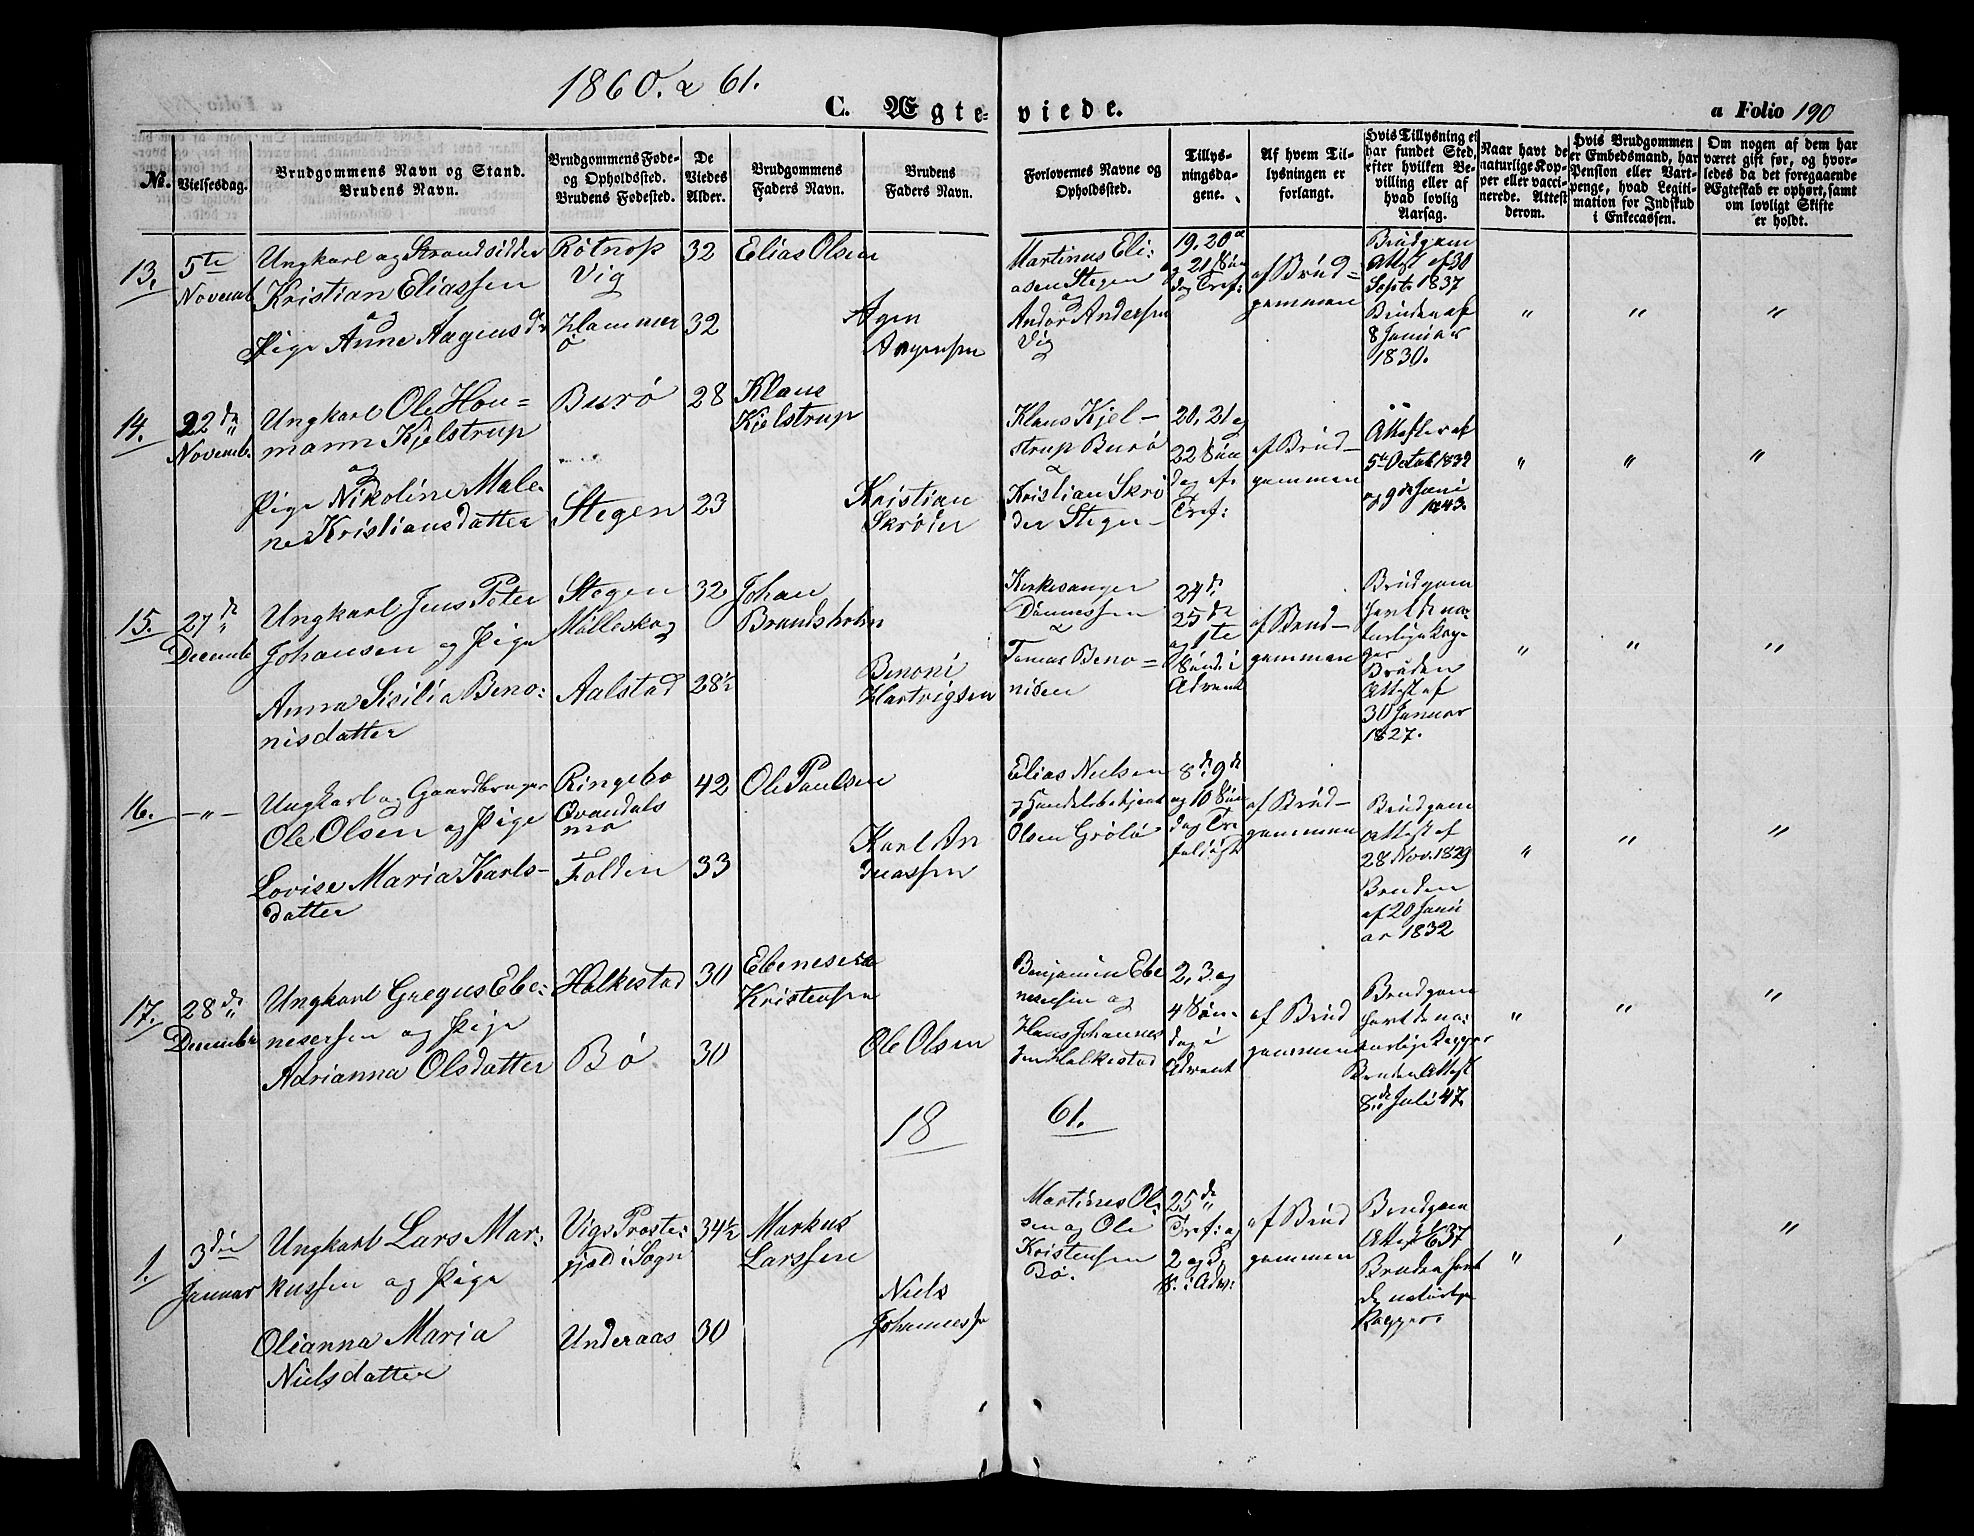 1860. & 61.
C. Ægteviede.
a Folio 190
No.
Vielsesdag.
Brudgommens Navn og Stand.
Brudens Navn.
Brudgommens Føde-
og Opholdssted.
Brudens Fødested.
De
Viedes
Alder.
Brudgommens
Faders Navn.
Brudens
Faders Navn.
Forlovernes Navne og
Opholdssted.
Tillys-
ningsda-
gene.
Af hvem Til-
lysningen er
forlangt.
Hvis Tillysning ei
har fundet Sted,
efter hvilken Be-
villing eller af
hvad lovlig
Aarsag.
Naar havt de
naturlige Kop-
per eller vacci-
nerede. Attest
derom.
Hvis Brudgommen
er Embedsmand, har
Pension eller Vart-
penge, hvad Legiti-
mation for Indskud
i Enkecassen.
Om nogen af dem har
været gift før, og hvor-
ledes da det foregaaende
Ægteskab er ophørt, samt
om lovligt Skifte
er holdt.
13.
5te
Novemb
Ungkarl og Strandsidder
Kristian Eliassen
og
Pige Anne Aagensdr
Røtnop
Vig
Hammer
ø
32
32
Elias Olsen
Agen
Aagensen
Martinus Eli-
asen Stegen
og
Andor Andersen
Vig
19. 20 a
og 21 Søn
dag Tref:
af Brud-
gommen
Brudgom
Attest af 30
Septr 1837
Bruden af
8 Januar
1830.
" " "
14.
22de
Novemb.
Ungkarl Ole Hou=
mann Kjelstrup
og
Pige Nikoline Male-
ne Kristiansdatter
Burø
Stegen
28
23
Klaus
Kjelstrup
Kristian
Skrøder
Klaus Kjel-
strup Burø
&
Kristian Skrø
der Stegen
20, 21 og
22 Søn
dag af.
Tref:
af Brud-
gommen
Attester af
5te Octob 1832
og 9de Juni
1843.
" " "
15.
27de
Decemb
Ungkarl Jens Peter
Johansen og Pige
Anna Sicilia Beno:
nisdatter
Stegen
Mølleskog
Aalstad
32
28½
Johan
Brandsholm
Benoni
Hartvigsen
Kirkesanger
Dønnessen
&
Tomas Beno=
nisen
24de
25de
og 1te
Sønd. i
Advent
af Brud-
gommen
Brudgom
havt de na-
turlige Kop-
per
Bruden
Attest af
30 Januar
1827.
" " "
16.
-"-
Ungkarl og Gaardbruger
Ole Olsen og Pige
Lovise Maria Karls-
datter
Ringebo
Qvandals
Folden
42
33
Ole Paulsen
Karl An
Elias Nielsen
og Handelsbetjent
Olsen Grøtø
8de 9de
og 10 Søn
dag Tre
foldigh
af Brud-
gommen
Brudgom
Attest af
28 Nov. 1829
Bruden
af 20 Janu
ar 1832
" " "
17.
28de
Decembr
Ungkarl Gregus Ebe-
nesersen og Pige
Adrianna Olsdatter
Halkestad
Bø
30
30
Ebeneser
Kristensen
Ole Olsen
Benjamin Ebe
nesersen og
Hans Johannes
sen Halkestad
2, 3. og
4 Søn-
dag i
Advent
af Brud
gommen
Brudgom
havt de na-
turlige Kopper
Bruden Attest
8de Juli 47.
" " "
18 61.
1.
3die
Januar
Ungkarl Lars Mar-
kussen og Pige
Olianna Maria
Nielsdatter
Vigs Præste-
gjæld i Sogn
Underaas
34½
30
Markus
Larssen
Niels
Johannessen
Martines Ol-
sen og Ole
Kristensen
Bø.
25de
Tref: og
2 og 3.
S. i Adv:
af Brud
gommen
Brudgom
Attest
Bruden havt
de naturlige
Kopper
" "